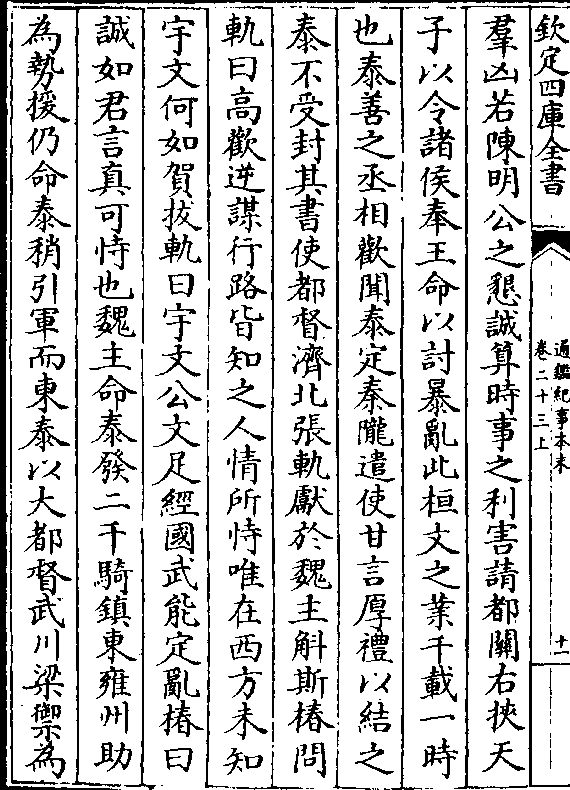 欽定四庫全書
通鑑紀事本末
卷二十三上
十一
羣凶若陳明公之懇誠算時事之利害請都關右挾天
子以令諸侯奉王命以討暴亂此桓文之業千載一時
也泰善之丞相歡聞泰定秦隴遣使甘言厚禮以結之
泰不受封其書使都督濟北張軌獻於魏主斛斯椿問
軌曰高歡逆謀行路皆知之人情所恃唯在西方未知
宇文何如賀拔軌曰宇文公文足經國武能定亂椿曰
誠如君言真可恃也魏主命泰發二千騎鎮東雍州助
為勢援仍命泰稍引軍而東泰以大都督武川梁禦為